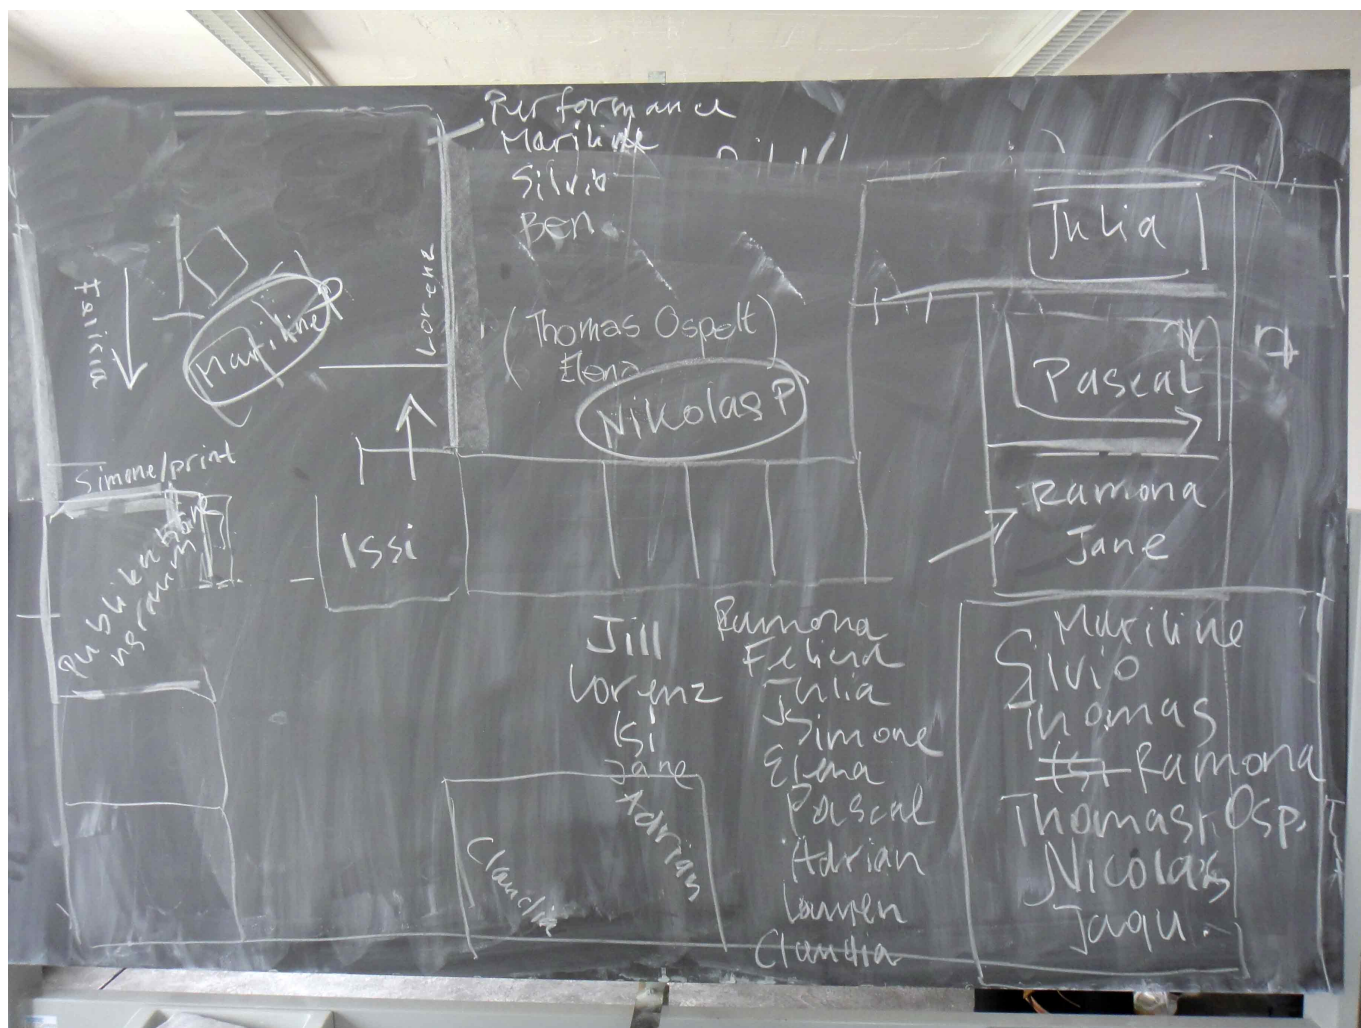 Performance
Mariline
Silvio
Ben
Julia
Felicia
Mariline
Lorenz
(Thomas Ospelt
Elena)
Nikolas P
Pascal
Simone/print
Publikatio
nsraum
Issi
Ramona
Jane
Jill
Lorenz
Isi
Jane
Adrian
Claudia
Ramona
Felicia
Julia
Simone
Elena
Pascal
Adrian
Lauren
Claudia
Mariline
Silvio
Thomas
Isi Ramona
Thomas Osp.
Nicolas
Jaqu.